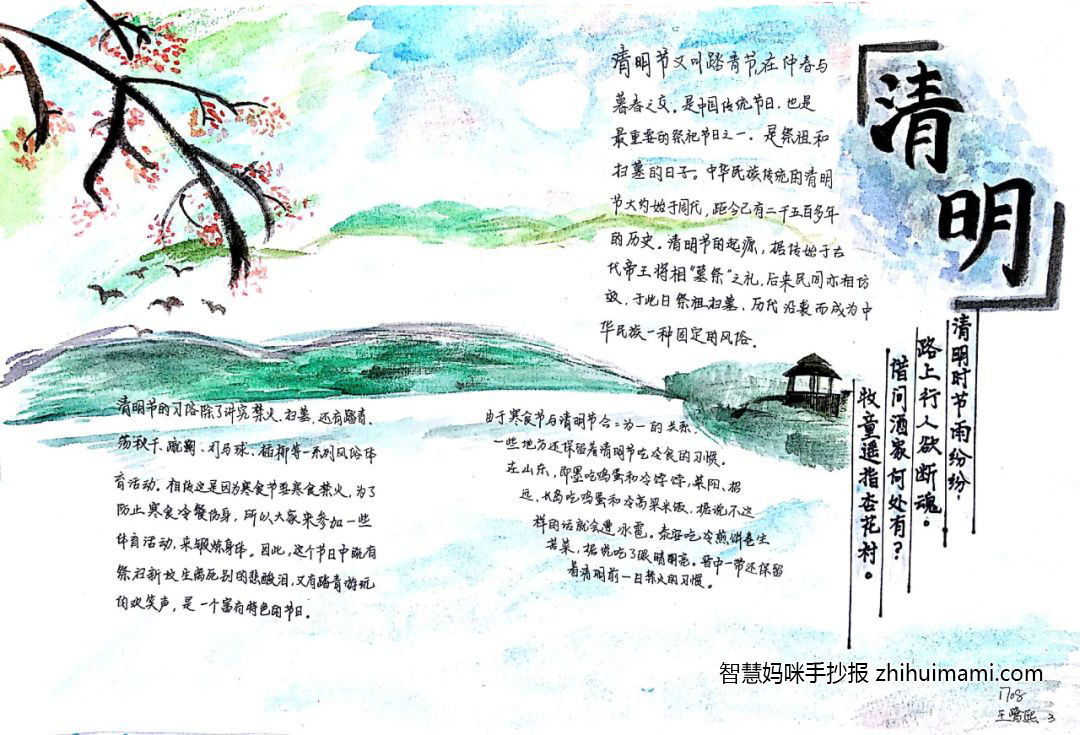 清明
清明时节雨纷纷，
路上行人欲断魂。
借问酒家何处有？
牧童遥指杏花村。
清明节又叫踏青节，在仲春与
暮春之交。是中国传统节日，也是
最重要的祭祀节日之一。是祭祖和
扫墓的日子。中华民族传统的清明
节大约始于周代，距今已有二千五百多年
的历史。清明节的起源，据传始于古
代帝王将相“墓祭”之礼，后来民间亦相仿
效，于此日祭祖扫墓，历代沿袭而成为中
华民族一种固定的风俗。
清明节的习俗除了讲究禁火、扫墓，还有踏青、
荡秋千、蹴鞠、打马球、插柳等一系列风俗体
育活动。相传这是因为寒食节要寒食禁火，为了
防止寒食冷餐伤身，所以大家来参加一些
体育活动，来锻炼身体。因此，这个节日中既有
祭扫新坟生离死别的悲酸泪，又有踏青游玩
的欢笑声，是一个富有特色的节日。
由于寒食节与清明节合二为一的关系，
一些地方还保留着清明节吃冷食的习惯。
在山东，即墨吃鸡蛋和冷饽饽，莱阳、招
远、长岛吃鸡蛋和冷高粱米饭，据说不这
样的话就会遭冰雹。泰安吃冷煎饼卷生
苦菜，据说吃了眼睛明亮。晋中一带还保留
着清明前一日禁火的习惯。
智慧妈咪手抄报 zhihuimami.com
1708